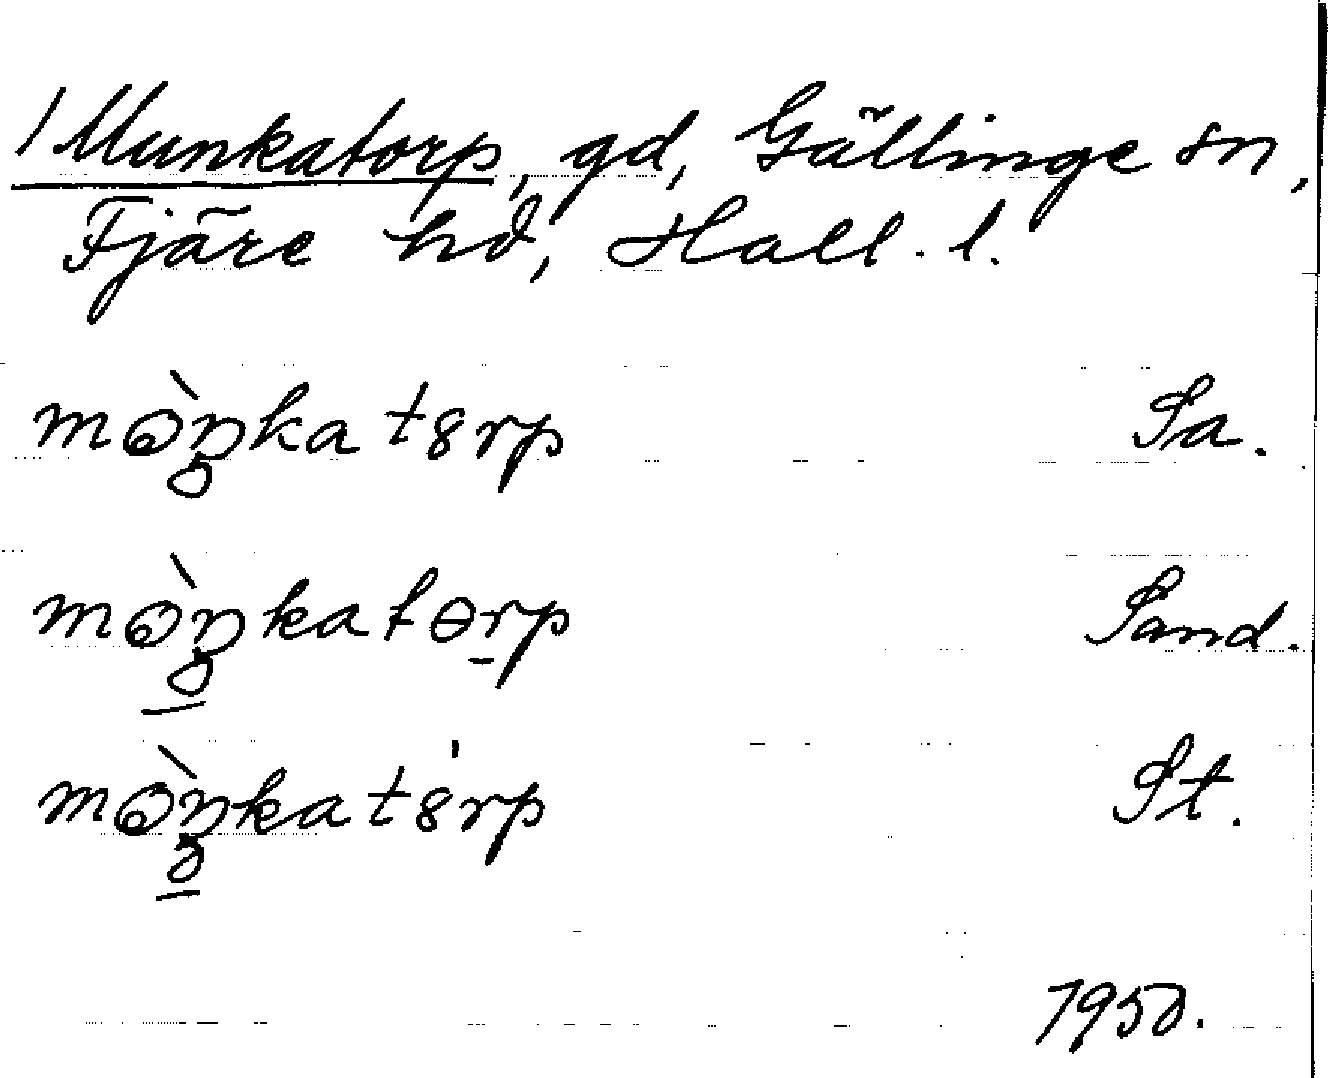 / Munkatorp, gd, Gällinge sn,
Fjäre hd, Hall. l.
mɷ̀ŋka tɞrp Sa.
mɷ̀ŋkatɵrp Sand.
mɷ̀ŋkatɞ'rp St.
1950.